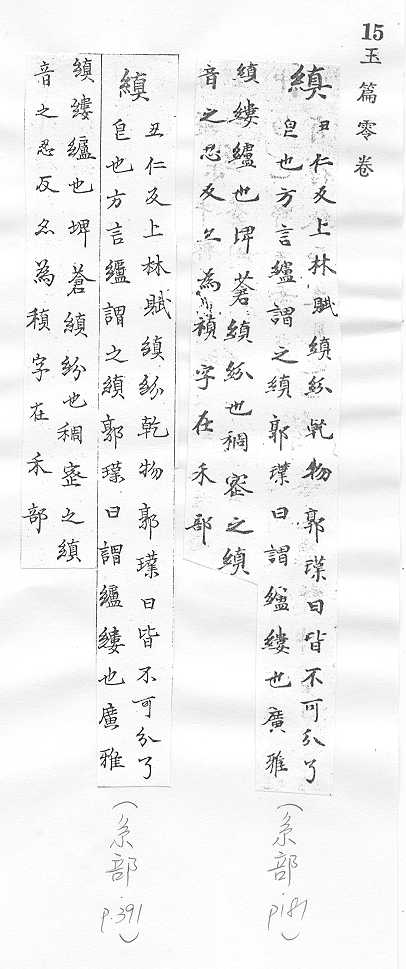 15玉篇零卷
縝丑仁反上林賦縝紛軋物郭璞曰皆不可分了
皃也方言纑謂之縝郭璞曰謂纑縷也廣雅
縝縷纑也埤蒼縝紛也稠密之縝
音之忍反亦為稹字在禾部
(糸部 p181)
縝丑仁反上林賦縝紛乾物郭璞曰皆不可分了
皃也方言纑謂之縝郭璞曰謂纑縷也廣雅
縝縷纑也埤蒼縝紛也稠密之縝
音之忍反亦為稹字在禾部
(糸部 p.391)